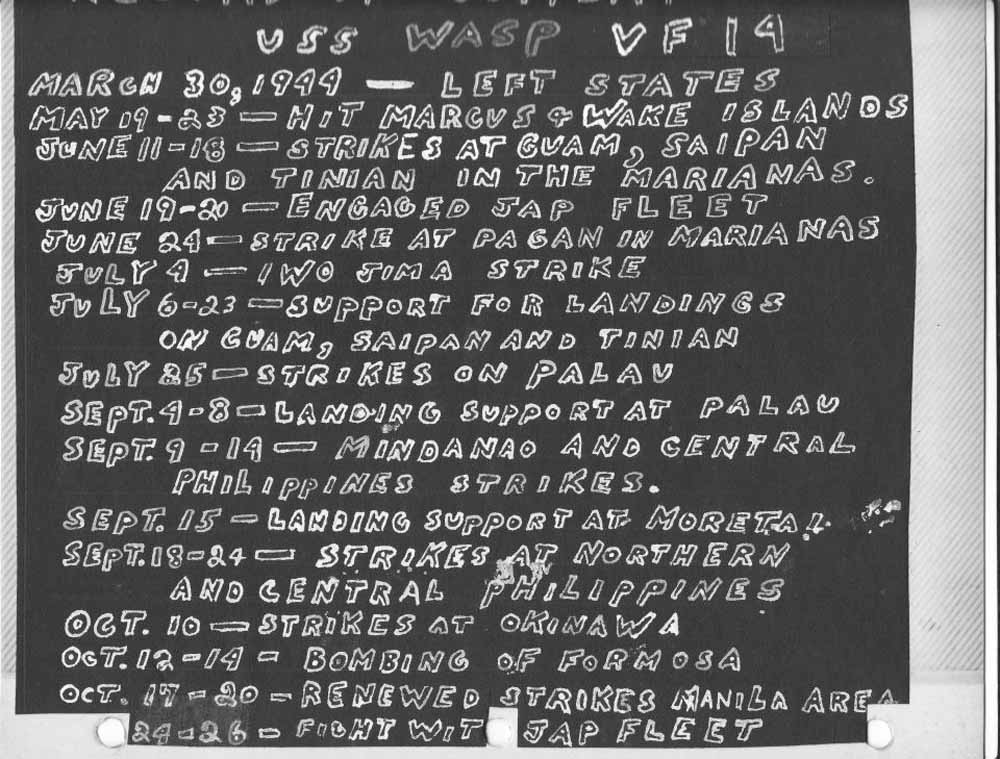 USS WASP VF 14
MARCH 30, 1944 — LEFT STATES
MAY 19-23 — HIT MARCUS & WAKE ISLANDS
JUNE 11-18 — STRIKES AT GUAM, SAIPAN
AND TINIAN IN THE MARIANAS.
JUNE 19-20 — ENGAGED JAP FLEET
JUNE 24 — STRIKE AT PAGAN IN MARIANAS
JULY 4 — IWO JIMA STRIKE
JULY 6-23 — SUPPORT FOR LANDINGS
ON GUAM, SAIPAN AND TINIAN
JULY 25 — STRIKES ON PALAU
SEPT. 4-8 — LANDING SUPPORT AT PALAU
SEPT. 9-14 — MINDANAO AND CENTRAL
PHILIPPINES STRIKES.
SEPT. 15 — LANDING SUPPORT AT MORETAI.
SEPT. 18-24 — STRIKES AT NORTHERN
AND CENTRAL PHILIPPINES
OCT. 10 — STRIKES AT OKINAWA
OCT. 12-14 - BOMBING OF FORMOSA
OCT. 17-20 - RENEWED STRIKES MANILA AREA
24-26 - FIGHT WIT JAP FLEET